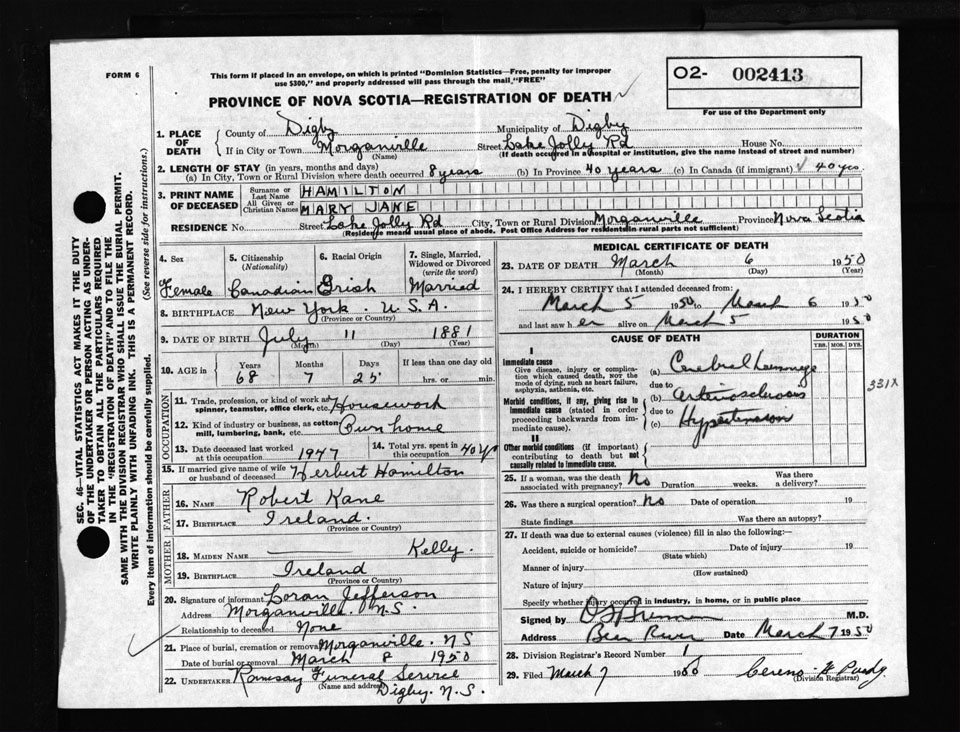 FORM 6
This form if placed in an envelope, on which is printed "Dominion Statistics—Free, penalty for improper
use $300," and properly addressed will pass through the mail, "FREE"
PROVINCE OF NOVA SCOTIA—REGISTRATION OF DEATH
O2- 002413
For use of the Department only
1. PLACE OF DEATH
County of Digby Municipality of Digby
If in City or Town Morganville Street Lake Jolly Rd House No.
(Name) (If death occurred in a hospital or institution, give the name instead of street and number)
2. LENGTH OF STAY (in years, months and days)
(a) In City, Town or Rural Division where death occurred 8 years (b) In Province 40 years (c) In Canada (if immigrant) 40 yrs
3. PRINT NAME OF DECEASED
Surname or Last Name HAMILTON
All Given or Christian Names MARY JANE
RESIDENCE No. Street Lake Jolly Rd City, Town or Rural Division Morganville Province Nova Scotia
(Residence means usual place of abode. Post Office Address for residents in rural parts not sufficient)
4. Sex
Female
5. Citizenship
(Nationality)
Canadian
6. Racial Origin
Irish
7. Single, Married,
Widowed or Divorced
(write the word)
Married
8. BIRTHPLACE New York. U.S.A.
(Province or Country)
9. DATE OF BIRTH July 11 1881
(Month) (Day) (Year)
10. AGE in
Years Months Days If less than one day old
68 7 25 hrs. or min.
OCCUPATION
11. Trade, profession, or kind of work as
spinner, teamster, office clerk, etc. Housework
12. Kind of industry or business, as cotton
mill, lumbering, bank, etc. Own home
13. Date deceased last worked
at this occupation 1947
14. Total yrs. spent in
this occupation 40 yrs
15. If married give name of wife
or husband of deceased Herbert Hamilton
FATHER
16. NAME Robert Kane
17. BIRTHPLACE Ireland.
(Province or Country)
MOTHER
18. MAIDEN NAME Kelly.
19. BIRTHPLACE Ireland
(Province or Country)
20. Signature of informant Loran Jefferson
Address Morganville. N.S.
Relationship to deceased None
21. Place of burial, cremation or removal Morganville. N.S
Date of burial or removal March 8 1950
22. UNDERTAKER Ramsay Funeral Service
(Name and address) Digby. N.S.
MEDICAL CERTIFICATE OF DEATH
23. DATE OF DEATH March 6 1950
(Month) (Day) (Year)
24. I HEREBY CERTIFY that I attended deceased from:
March 5 1950 to March 6 1950
and last saw her alive on March 5 1950
CAUSE OF DEATH
DURATION
YRS. MOS. DYS.
I
Immediate cause
Give disease, injury or complica-
tion which caused death, NOT the
mode of dying, such as heart failure,
asphyxia, asthenia, etc.
(a) Cerebral
due to
Morbid conditions, if any, giving rise to
immediate cause (stated in order
proceeding backwards from im-
mediate cause).
(b) Arteriosclerosis
due to
(c) Hypertension
331X
II
Other morbid conditions (if important)
contributing to death but not
causally related to immediate cause.
25. If a woman, was the death
associated with pregnancy? No Duration weeks. Was there
a delivery?
26. Was there a surgical operation? No Date of operation 19
State findings Was there an autopsy?
27. If death was due to external causes (violence) fill in also the following:—
Accident, suicide or homicide? Date of injury 19
(State which)
Manner of injury
(How sustained)
Nature of injury
Specify whether injury occurred in industry, in home, or in public place
Signed by M.D.
Address Bear River Date March 7 1950
28. Division Registrar's Record Number 1
29. Filed March 7 1950
(Division Registrar)
SEC. 46—VITAL STATISTICS ACT MAKES IT THE DUTY
OF THE UNDERTAKER OR PERSON ACTING AS UNDER-
TAKER TO OBTAIN ALL THE PARTICULARS REQUIRED
IN THE "REGISTRATION OF DEATH" AND TO FILE THE
SAME WITH THE DIVISION REGISTRAR WHO SHALL ISSUE THE BURIAL PERMIT.
WRITE PLAINLY WITH UNFADING INK. THIS IS A PERMANENT RECORD.
Every item of information should be carefully supplied. (See reverse side for instructions.)